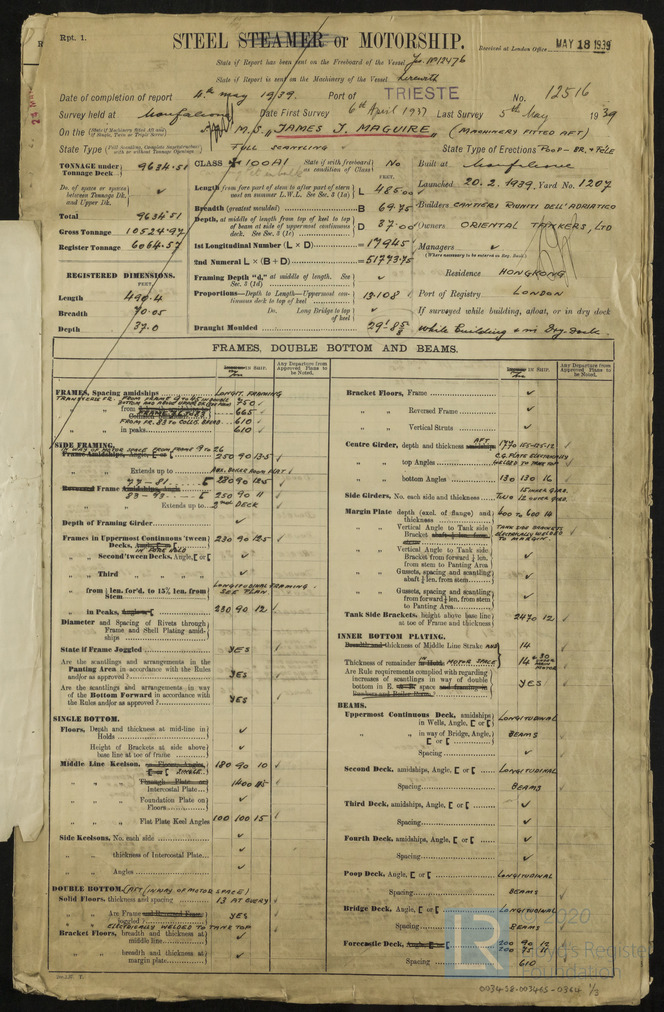 Rpt. 1.
STEEL STEAMER or MOTORSHIP.
Received at London Office MAY 18 1939
State if Report has been sent on the Freeboard of the Vessel Yes. No 12476
State if Report is sent on the Machinery of the Vessel
Date of completion of report 4th May 1939. Port of TRIESTE No. 12516
Survey held at Monfalcone Date First Survey 6th April 1937 Last Survey 5th May 1939
On the M.S. "JAMES J. MAGUIRE" (MACHINERY FITTED AFT)
State Type FULL SCANTLING State Type of Erections POOP - BR. & FCLE
TONNAGE under Tonnage Deck 9634.51
CLASS 100A1 State if with freeboard as condition of Class No
Built at Monfalcone
Do. of space or spaces between Tonnage Dk. and Upper Dk. ✓
Length from fore part of stem to after part of stern post on summer L.W.L. See Sec. 3 (1a) L 485.00
Launched 20.2.1939. Yard No. 1207
Total 9634.51
Breadth (greatest moulded) B 69.75
Builders CANTIERI RIUNITI DELL'ADRIATICO
Gross Tonnage 10524.97
Depth, at middle of length from top of keel to top of beam at side of uppermost continuous deck. See Sec. 3 (1c) D 37.00
Owners ORIENTAL TANKERS, LTD
Register Tonnage 6064.57
1st Longitudinal Number (L × D) = 17945
Managers ✓
2nd Numeral L × (B + D) = 51773.75
Residence HONGKONG
REGISTERED DIMENSIONS.
FEET
Framing Depth "d," at middle of length. See Sec. 3 (1d) ✓
Proportions—Depth to Length—Uppermost continuous deck to top of keel 13.108
Port of Registry LONDON
Length 490.4
Do. Long Bridge to top of keel ✓
If surveyed while building, afloat, or in dry dock
Breadth 70.05
Depth 37.0
Draught Moulded
While building & in Dry-dock.
FRAMES, DOUBLE BOTTOM AND BEAMS.
Any Departure from Approved Plans to be Noted.
Any Departure from Approved Plans to be Noted.
FRAMES, Spacing amidships LONGIT. FRAMING
" " from 665
FROM FR. 83 TO COLLIS. BHEAD 610
" " in peaks 610
SIDE FRAMING.
IN WAY OF MOTOR SPACE FROM FRAME 9 TO 26
Frame Amidships, Angle, [ or [ 250 90 13.5
" " Extends up to
77 - 81 [ 230 90 12.5
Reversed Frame Amidships, Angle
83 - 93 [ 250 90 11
" " Extends up to 2nd DECK
Depth of Framing Girder ✓
Frames in Uppermost Continuous 'tween Decks, Angle, [ or [ 230 90 12.5
IN FORE HOLD
" " Second 'tween Decks, Angle, [ or [ ✓
" " Third " " " ✓
" " from ¼ len. for'd. to 15% len. from Stem LONGITUDINAL FRAMING SEE PLAN
" " in Peaks, Angle or [ 230 90 12
Diameter and Spacing of Rivets through Frame and Shell Plating amidships
State if Frame Joggled YES
Are the scantlings and arrangements in the Panting Area in accordance with the Rules and/or as approved? YES
Are the scantlings and arrangements in way of the Bottom Forward in accordance with the Rules and/or as approved? YES
SINGLE BOTTOM.
Floors, Depth and thickness at mid-line in Holds ✓
" Height of Brackets at side above base line at toe of frame ✓
Middle Line Keelson, on Floors, Angles, [ or [ SINGLE 180 90 10
" " Through Plate or Intercostal Plate
" " Foundation Plate on Floors ✓
" " Flat Plate Keel Angles 100 100 15
Side Keelsons, No. each side ✓
" " thickness of Intercostal Plate ✓
" " Angles ✓
DOUBLE BOTTOM. (AFT (IN WAY OF MOTOR SPACE)
Solid Floors, thickness and spacing 13 AT EVERY
" " Are Frame and Reversed Frame joggled? YES
ELECTRICALLY WELDED TO TANK TOP
Bracket Floors, breadth and thickness at middle line ✓
" " breadth and thickness at margin plate ✓
Bracket Floors, Frame ✓
" " Reversed Frame ✓
" " Vertical Struts ✓
Centre Girder, depth and thickness amidships AFT
" " top Angles C.G. PLATE ELECTRICALLY WELDED TO TANK TOP
" " bottom Angles 130 130 16
Side Girders, No. each side and thickness TWO
Margin Plate depth (excl. of flange) and thickness 400 to 600 14
" " Vertical Angle to Tank side Bracket TANK SIDE BRACKETS ELECTRICALLY WELDED TO MARGIN
" " Vertical Angle to Tank side Bracket from forward ¼ len. from stem to Panting Area ✓
" " Gussets, spacing and scantling abaft ¼ len. from stem ✓
" " Gussets, spacing and scantling from forward ¼ len. from stem to Panting Area ✓
Tank Side Brackets, height above base line at toe of Frame and thickness 2470 12
INNER BOTTOM PLATING.
Breadth and thickness of Middle Line Strake 14
Thickness of remainder in Holds IN MOTOR SPACE 14
Are Rule requirements complied with regarding increases of scantlings in way of double bottom in E. space and framing in YES
BEAMS.
Uppermost Continuous Deck, amidships in Wells, Angle, [ or [ LONGITUDINAL
" " in way of Bridge, Angle, [ or [ BEAMS
Spacing ✓
Second Deck, amidships, Angle, [ or [ LONGITUDINAL
Spacing BEAMS
Third Deck, amidships, Angle, [ or [ ✓
Spacing ✓
Fourth Deck, amidships, Angle, [ or [ ✓
Spacing ✓
Poop Deck, Angle, [ or [ LONGITUDINAL
Spacing BEAMS
Bridge Deck, Angle, [ or [ LONGITUDINAL
Spacing BEAMS
Forecastle Deck, Angle, [ or [ 200 90 12
200 75 11
Spacing 610
LR
© 2020
Lloyd's Register
Foundation
003438-003445-0364 1/3